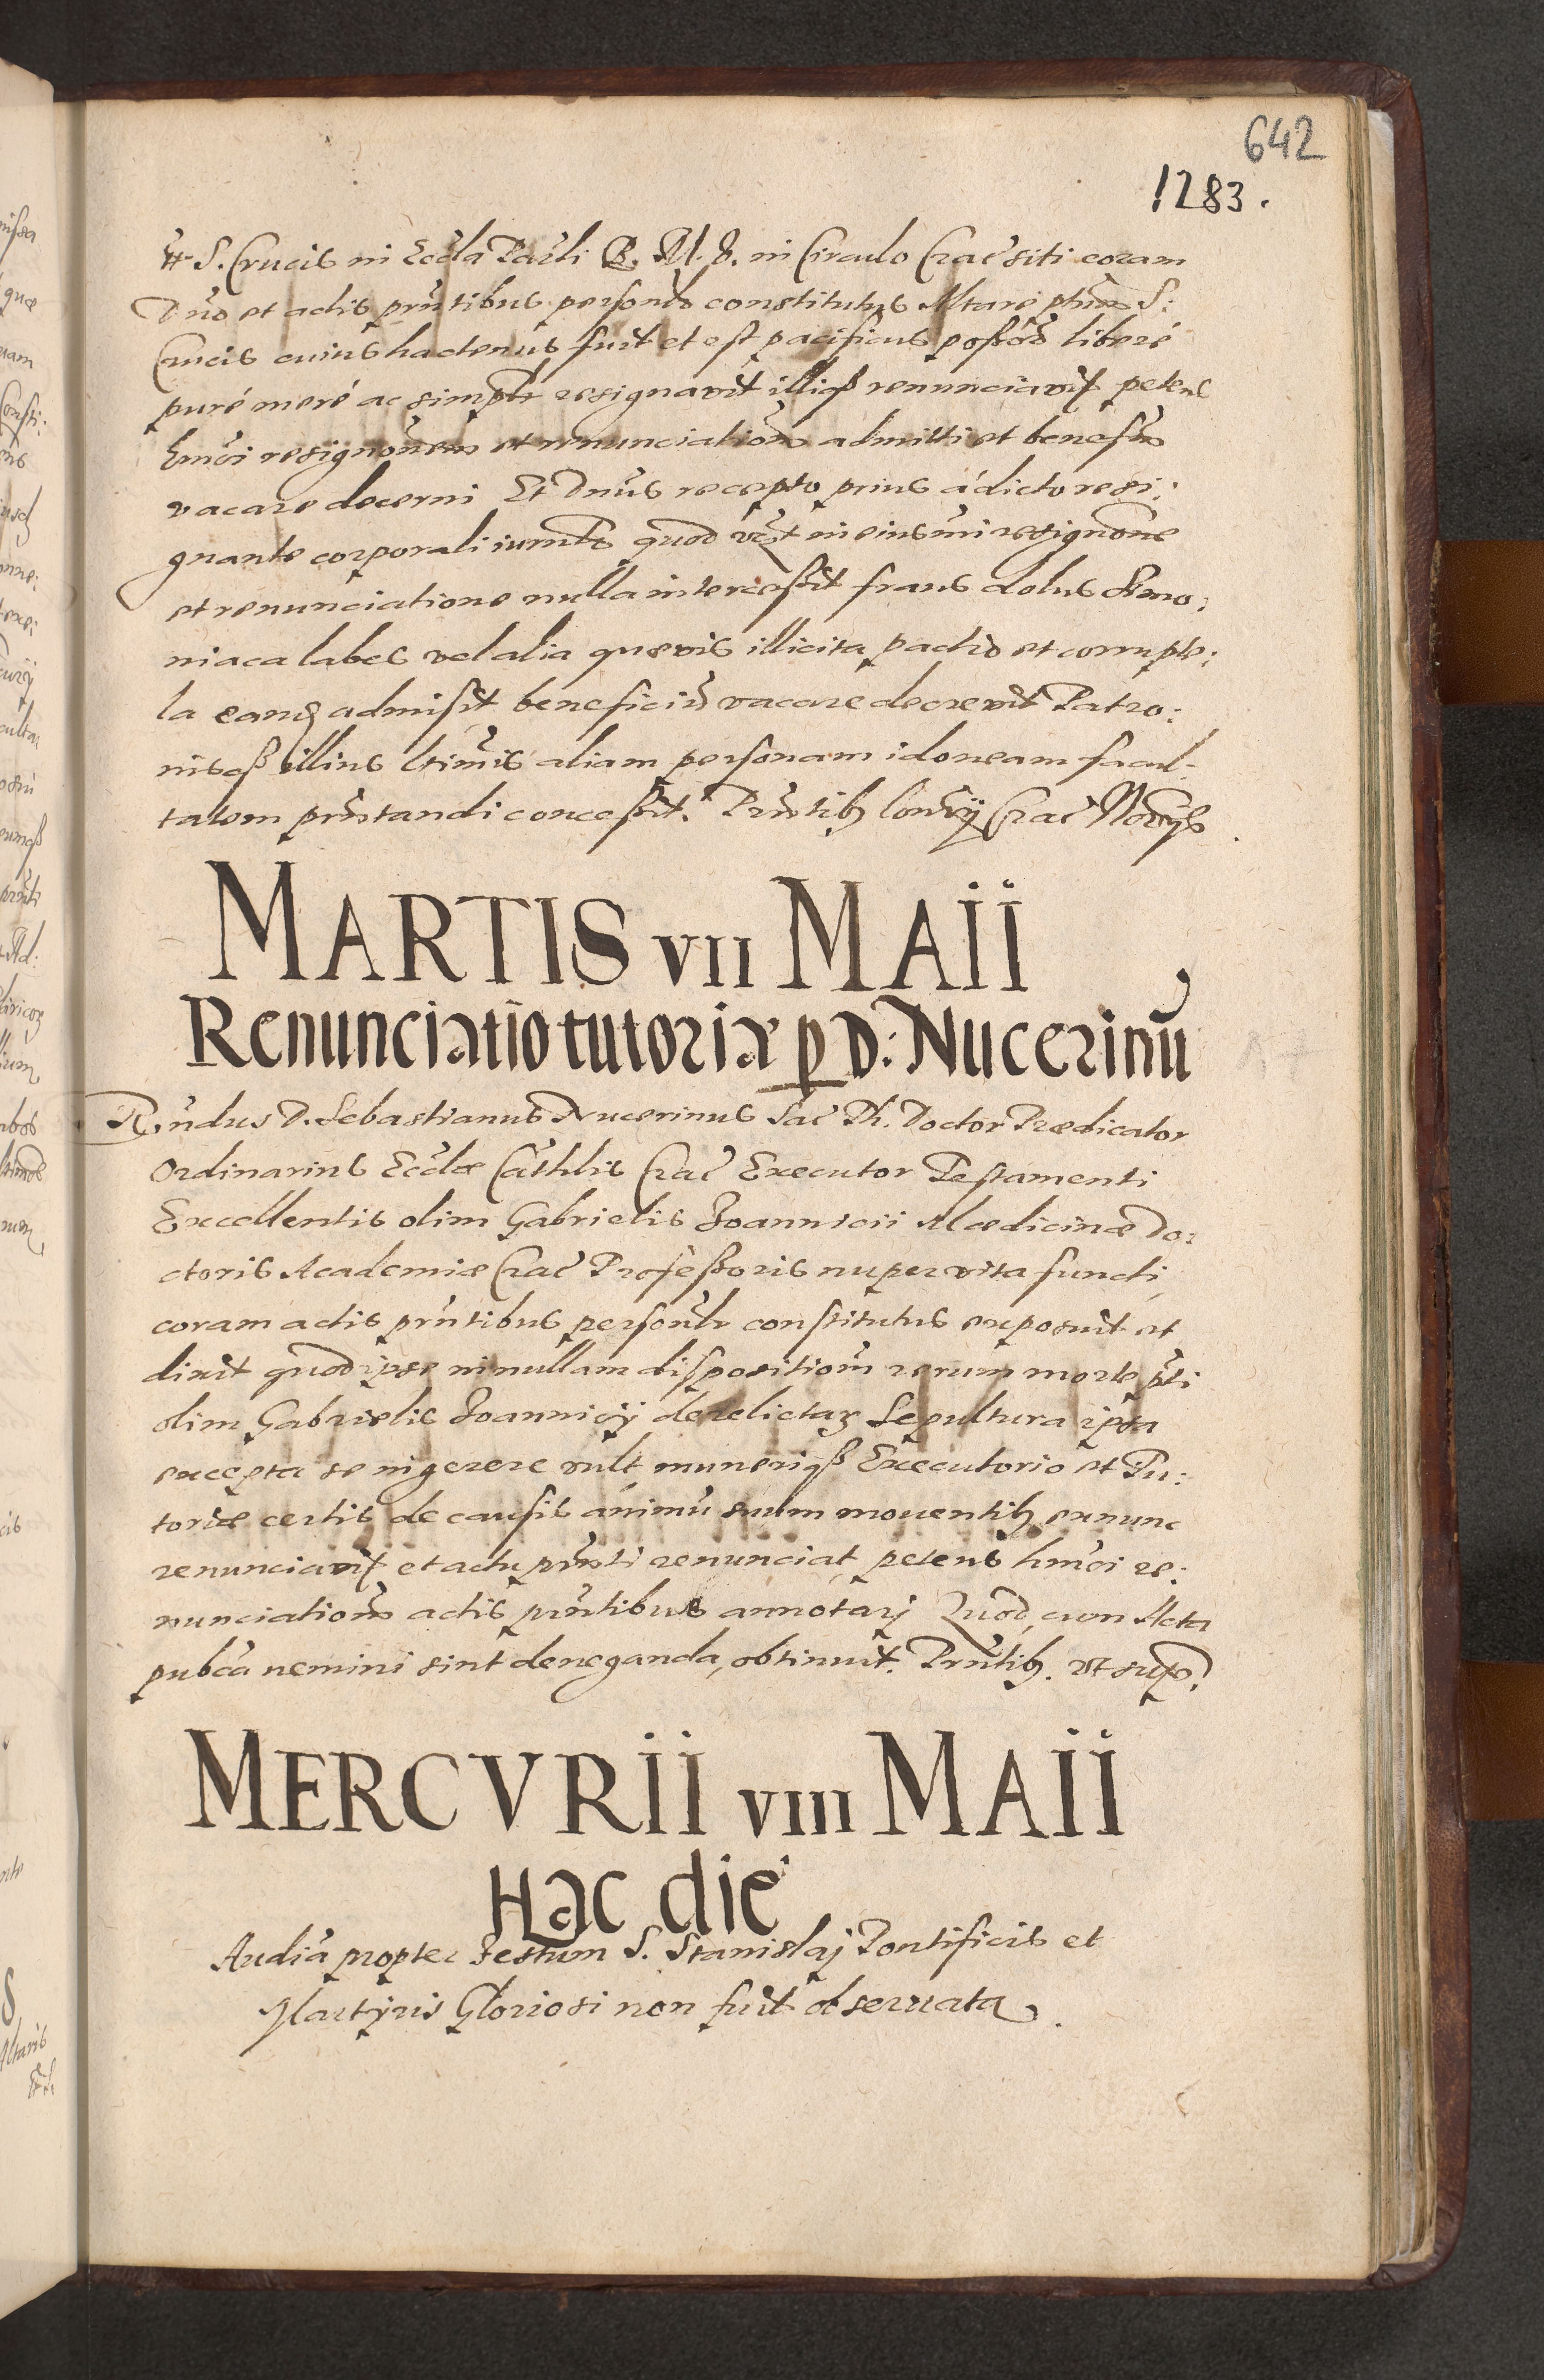 642
1283.
tt S. Crucis in Eccła Parłi B. M. V. in Circulo Crac̃ siti coram
Dño et actis pr̃ntibus personł̃r constitutus Altare p̃tum S:
Crucis cuius hactenus fuit et est pacificus poßor̃ liberé
puré meré ac simplr̃ resignavit illiqß renunciavit petens
hm̃oi resignõnem et renunciationẽ admitti et benef̃m
vacare decerni Et Dnũs recepto prius á dicto resi:
gnante corporali iurm̃to quod vz̃t in eiusm̃i resignõne
et renunciatione nulla interceßit fraus dolus Simo:
niaca labes vel alia quævis illicita pactio et corrupte:
la eanq̃ admisit beneficiũ vacare decrevit Patro:
nisqß illius ltim̃is aliam personam idoneam facul:
tatem pr̃ntandi conceßit. Pr̃ntibꝫ Crac̃ Nor̃ijs
MARTIS VII MAII
Renunciatio tutoriæ ꝑ D: Nucerinũ
R̃ndus D. Sebastianus Nucerinus Sac̃ Th. Doctor Prædicator
Ordinarius Eccłæ Cãthlis Crac̃ Executor Testamenti
Excellentis olim Gabrielis Joannicii Mædicinæ Do:
ctoris Academiæ Crac̃ Profeßoris nuper vita functi,
coram actis pr̃ntibus personł̃r constitutus exposuit et
dixit quod ipse in nullam dispositionẽ rerum morte p̃ti
olim Gabrielis Joannicij derelictarꝫ Sepultura ipsa
excepta se ingerere vult muneriqß Executorio et Tu:
toriæ certis de causis animũ suum moventibꝫ exnunc
renunciavit et actu pr̃nti renunciat petens hm̃oi re:
nunciationẽ actis pr̃ntibus annotarj Quod, cum Acta
publ̃ca nemini sint deneganda, obtinuit. Pr̃ntibꝫ. vt supr̃.
MERCVRII VIII MAII
Hac die
Audĩa propter Festum S. Stanislaj Pontificis et
Martyris Gloriosi non fuit observata.